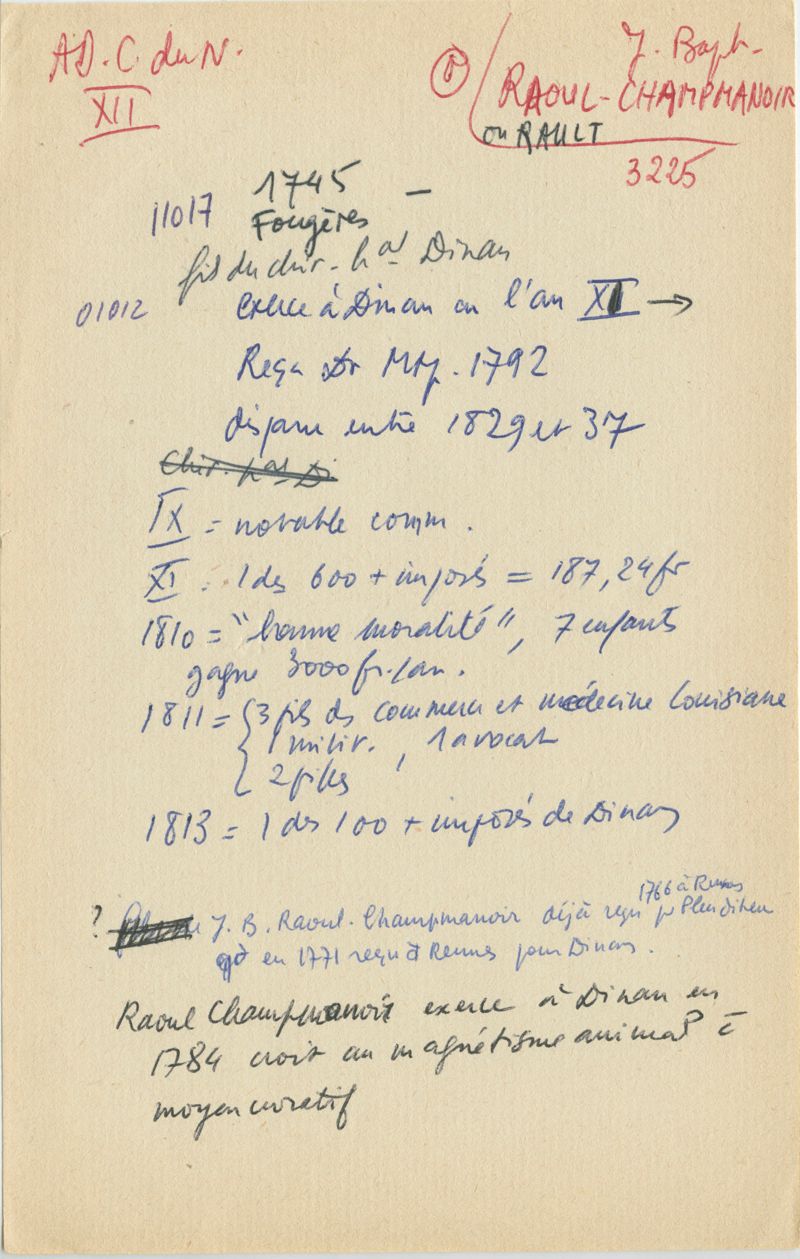 AD. C. du N.
XII
J. Bapt.
RAOUL-CHAMPMANOIR
ou RAULT
3225
11017 1745 –
Fougères
fils du chir. hal Dinan
01012 exerce à Dinan en l'an XI →
Reçu Dr Mtp. 1792
disparu entre 1829 et 37
Chir. hal Di
IX = notable comm.
XI = 1 des 600 + imposés = 187,24 fr
1810 = "bonne moralité", 7 enfants
gagne 3000 fr./an.
1811 = { 3 fils ds commerce et médecine Louisiane
1 milit. , 1 avocat
2 filles
1813 = 1 des 100 + imposés de Dinan
1766 à Rennes
? J. B. Raoul-Champmanoir déjà reçu pr Pleudihen
en 1771 reçu à Rennes pour Dinan.
Raoul Champmanoir exerce à Dinan en
1784 croit au magnétisme animal c̄
moyen curatif